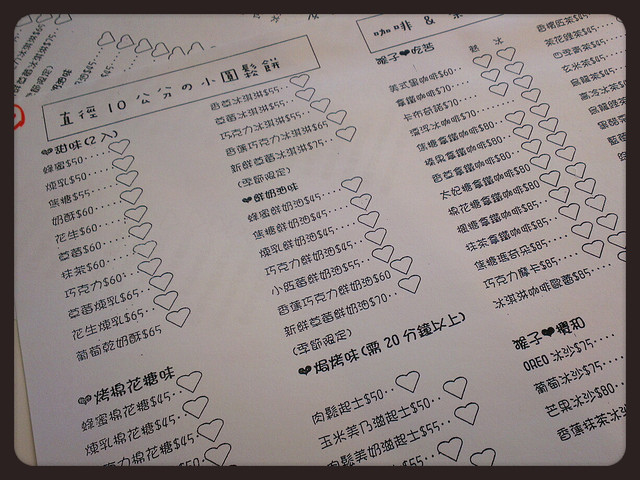 直徑10公分の小圓鬆餅
❤甜味(2入)
蜂蜜$50
煉乳$50
焦糖$55
奶酥$60
花生$60
草莓$60
抹茶$60
巧克力$60
草莓煉乳$65
花生煉乳$65
葡萄乾奶酥$65
❤烤棉花糖味
蜂蜜棉花糖$45
煉乳棉花糖$45
力棉花糖$45
香草冰淇淋$55
草莓冰淇淋$55
巧克力冰淇淋$55
香蕉巧克力冰淇淋$65
新鮮草莓冰淇淋$75
(季節限定)
❤鮮奶油味
蜂蜜鮮奶油$45
焦糖鮮奶油$45
煉乳鮮奶油$45
巧克力鮮奶油$45
小紅莓鮮奶油$55
香蕉巧克力鮮奶油$60
新鮮草莓鮮奶油$70
(季節限定)
❤焗烤味(需20分鐘以上)
肉鬆起士$50
玉米美乃滋起士$50
肉鬆美奶滋起士$55
咖啡 &
猴子❤吃苦 熱 冰
美式黑咖啡$60
拿鐵咖啡$70
卡布奇諾$70
漂浮冰咖啡$70
焦糖拿鐵咖啡$80
榛果拿鐵咖啡$80
香草拿鐵咖啡$80
太妃糖拿鐵咖啡$80
棉花糖拿鐵咖啡$80
楓糖拿鐵咖啡$85
抹茶拿鐵咖啡$85
焦糖瑪奇朵$85
巧克力摩卡$85
冰淇淋咖啡歐蕾$85
猴子❤攪和
OREO冰沙$75
葡萄冰沙$75
芒果冰沙$80
香蕉抹茶冰沙
茉花綠茶$45
四季春茶$45
玄米茶$45
烏龍茶$45